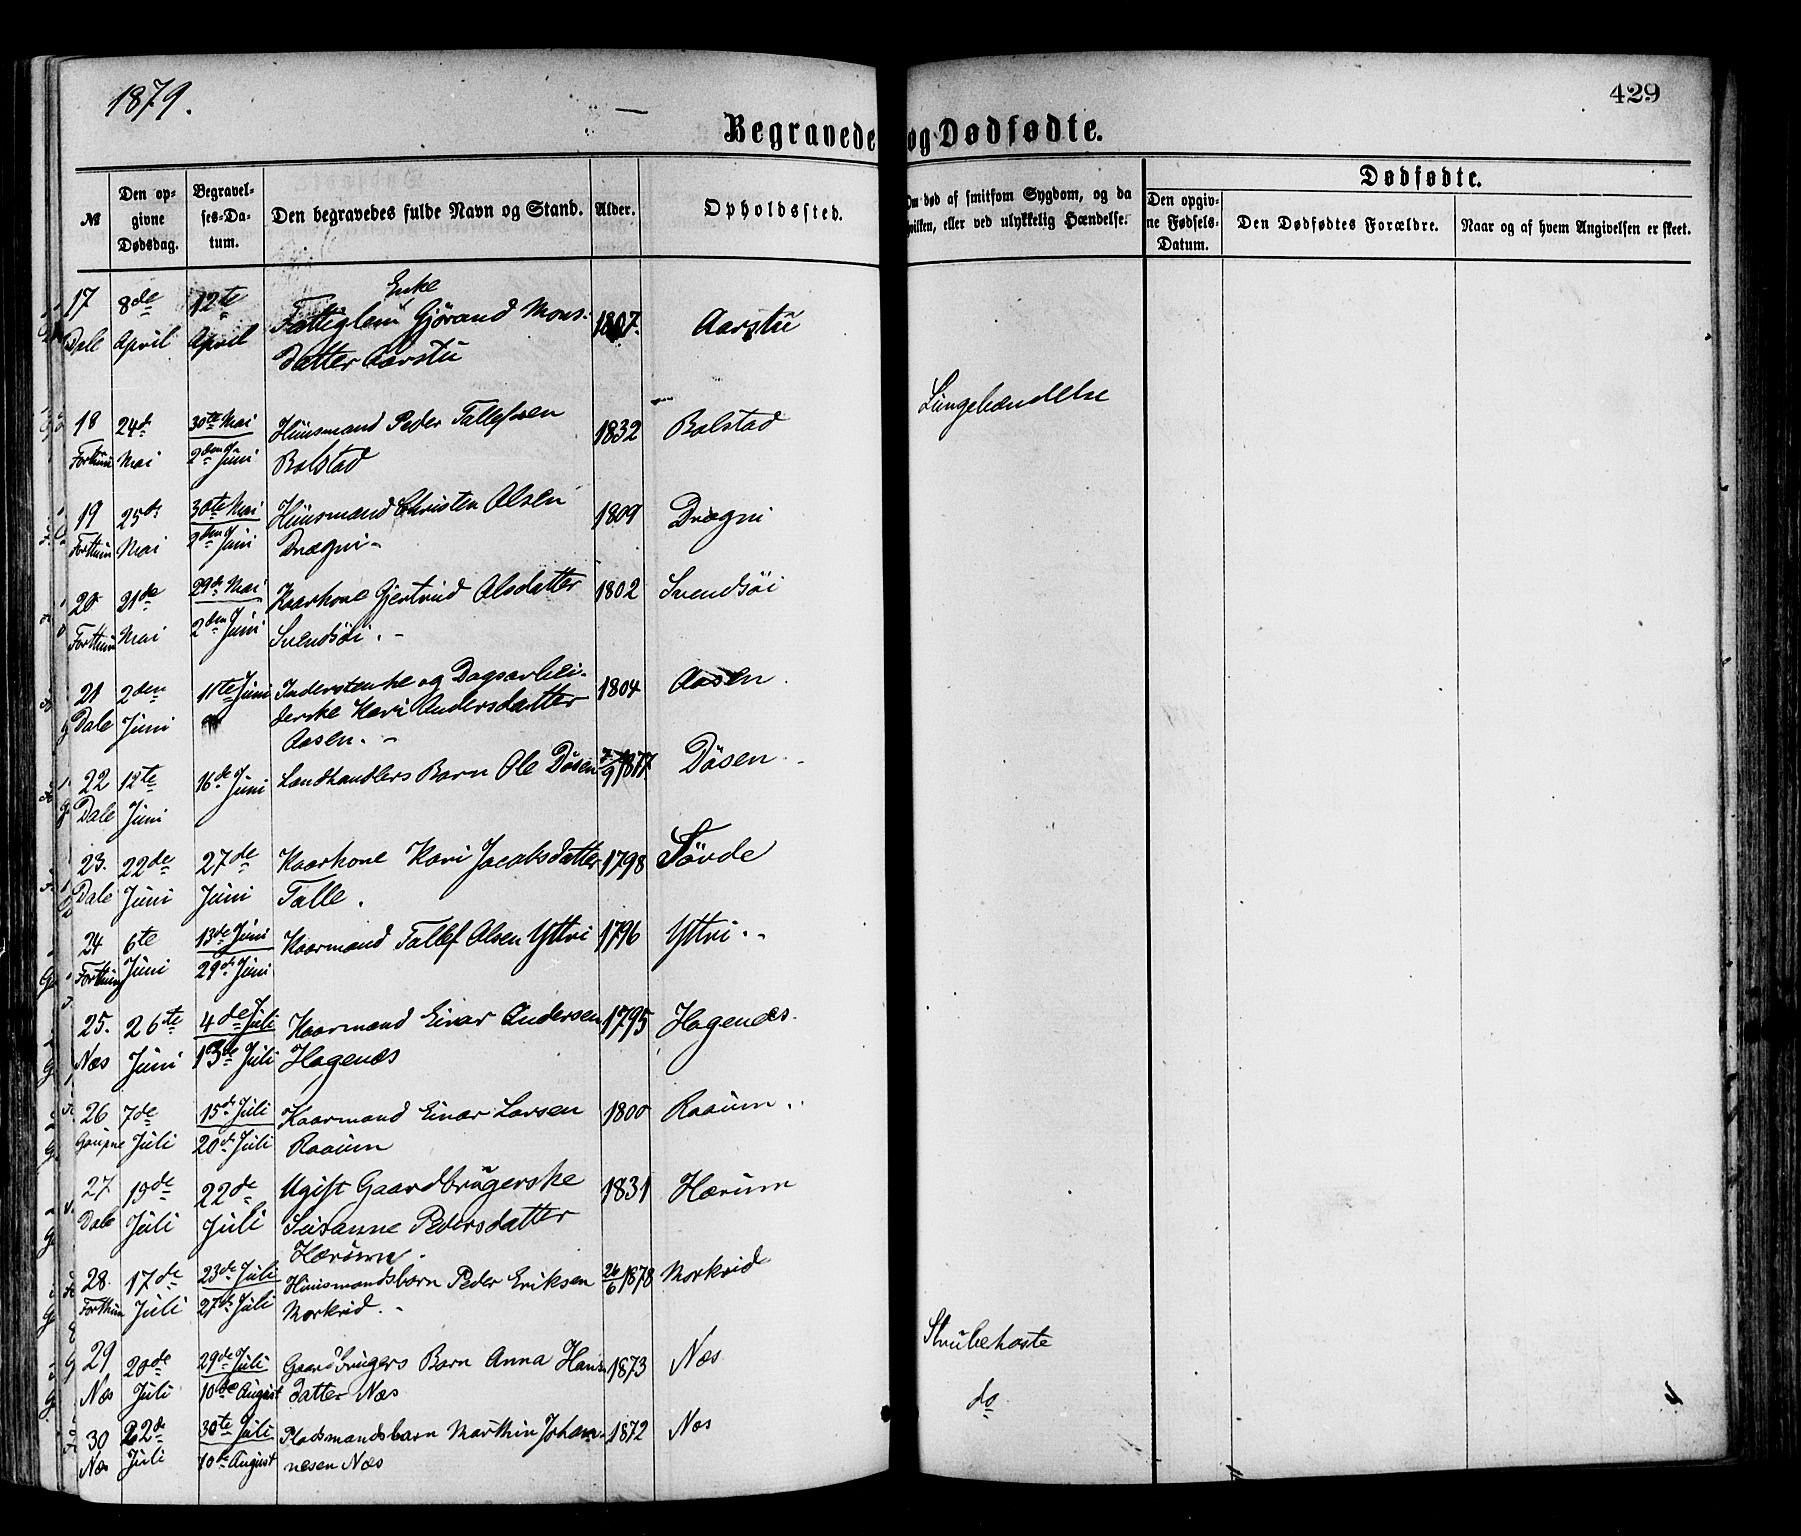 1879.
429
Begravede og Dødfødte.
№
Den opgivne Dødsdag.
Begravelses-Datum.
Den begravedes fulde Navn og Stand.
Alder.
Opholdssted.
Om død af smitsom Sygdom, og da hvilken, eller ved ulykkelig Hændelse.
Dødfødte.
Den opgivne Fødsels-Datum.
Den Dødfødtes Forældre.
Naar og af hvem Angivelsen er skeet.
17 8de 12te Enke
Fattiglem Gjørand Mons- 1807. Aarstu
Dale April April datter Aarstu
18 24de 30te Mai Huusmand Peder Tollefsen 1832 Bolstad Lungebetændelse
Forthun Mai 2den Juni Bolstad
19 25de 30te Mai Huusmand Christen Olsen 1809 Drægni
Forthun Mai 2den Juni Drægni
20 21de 29de Mai Kaarkone Gjertrud Olsdatter 1802 Svendsöi
Forthun Mai 2den Juni Svendsöi.
21 2den 11te Juni Inderstenke og Dagsarbei- 1804 Aasen.
Dale Juni derske Kari Andersdatter
Aasen.
22 12te 16de Juni Landhandlers Barn Ole Døsen 7/9 1877 Døsen
Dale Juni
23. 22de 27de Kaarkone Kari Jacobsdatter 1798 Sørde
Dale Juni Juni Talle.
24 6te 13de Juni Kaarmand Tollef Olsen Yttri 1796 Yttri.
Forthun Juni 29de Juni
25. 26te 4de Juli Kaarmand Einar Andersen 1795 Hagenæs.
Næs Juni 13de Juli Hagenæs
26 7de 15de Juli Kaarmand Einar Larsen 1800 Raaum.
Gaupne Juli 20de Juli Raaum
27 19de 22de Ugift Gaardbrugerske 1831 Hærum
Dale Juli Juli Susanne Pedersdatter
Hærum.
28. 17de 23de Juli Huusmandsbarn Peder Eriksen 26/6 1878 Morkrid
Forthun Juli 27de Juli Morkrid.
29 20de 29de Juli Gaardbrugers Barn Anna Hans- 1873 Næs Strubehoste
Næs Juli 10de August datter Næs
30 22de 30te Juli Pladsmandsbarn Marthin Johan- 1872 Næs do
Næs Juli 10de August nesen Næs